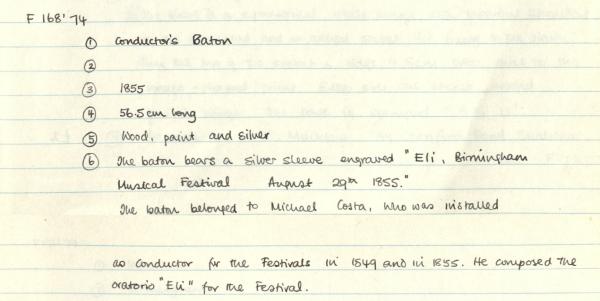 F 168'74
① Conductor's Baton
②
③ 1855
④ 56.5cm long
⑤ Wood, paint and silver
⑥ The baton bears a silver sleeve engraved "Eli, Birmingham
Musical Festival August 29th 1855."
The baton belonged to Michael Costa, who was installed
as conductor for the Festivals in 1849 and in 1855. He composed the
oratorio "Eli" for the Festival.